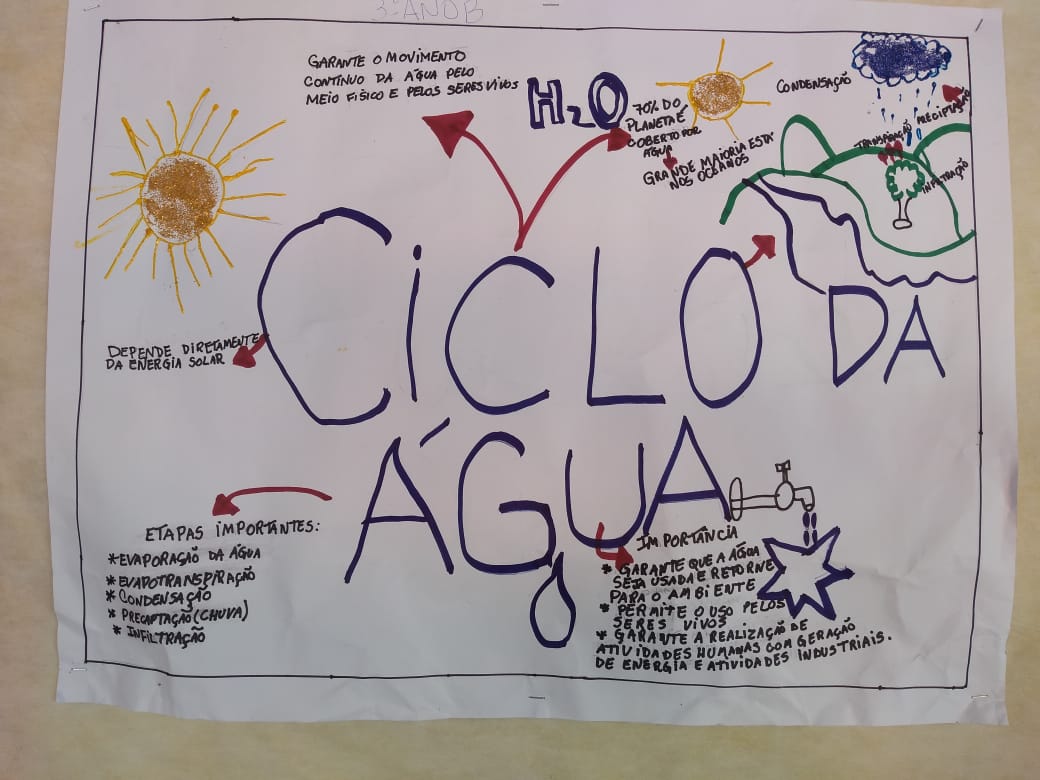 3º ANO B
GARANTE O MOVIMENTO
CONTÍNUO DA ÁGUA PELO
MEIO FÍSICO E PELOS SERES VIVOS
H₂O
70% DO
PLANETA É
COBERTO POR
ÁGUA
GRANDE MAIORIA ESTÁ
NOS OCEANOS
CONDENSAÇÃO
TRANSPIRAÇÃO
PRECIPTAÇÃO
INFILTRAÇÃO
CICLO DA
ÁGUA
DEPENDE DIRETAMENTE
DA ENERGIA SOLAR
ETAPAS IMPORTANTES:
* EVAPORAÇÃO DA ÁGUA
* EVAPOTRANSPIRAÇÃO
* CONDENSAÇÃO
* PRECAPTAÇÃO (CHUVA)
* INFILTRAÇÃO
IMPORTÂNCIA
* GARANTE QUE A ÁGUA
SEJA USADA E RETORNE
PARA O AMBIENTE
* PERMITE O USO PELOS
SERES VIVOS
* GARANTE A REALIZAÇÃO DE
ATIVIDADES HUMANAS COM GERAÇÃO
DE ENERGIA E ATIVIDADES INDUSTRIAIS.